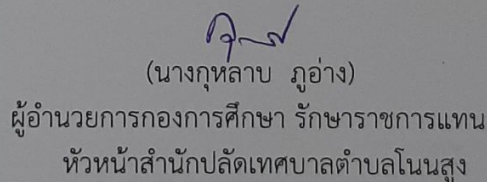 (นางกุหลาบ ภูอ่าง)
ผู้อำนวยการกองการศึกษา รักษาราชการแทน
หัวหน้าสำนักปลัดเทศบาลตำบลโนนสูง